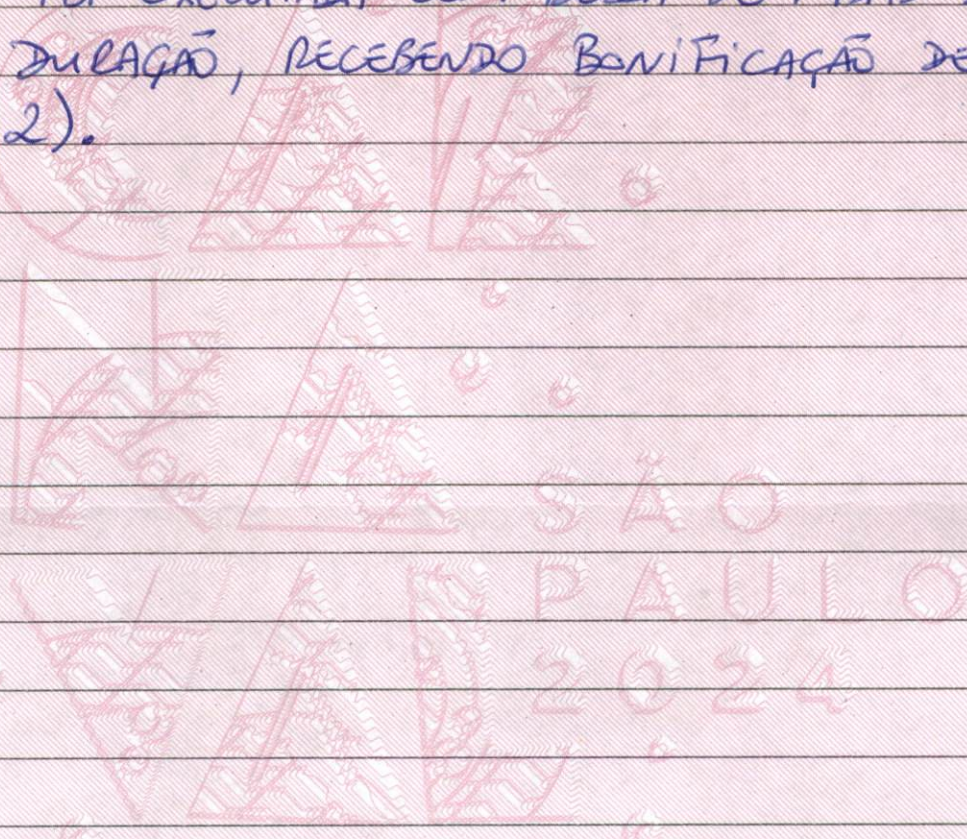 DURAÇÃO, RECEBENDO BONIFICAÇÃO DE
2).
CAR
NA
VAL
SÃO
PAULO
2024